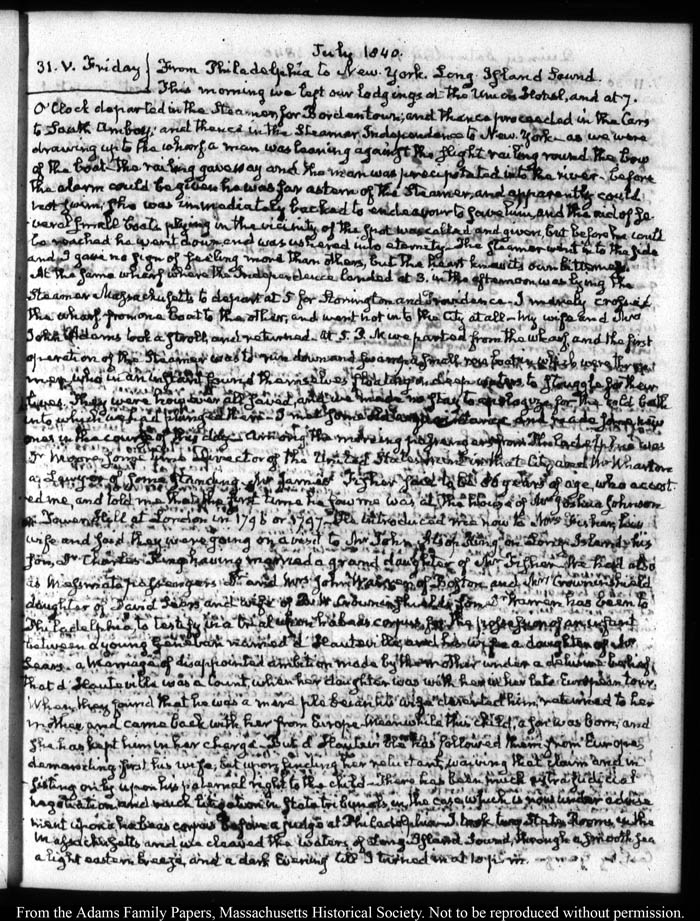 July 1840.
31. V. Friday } From Philadelphia to New-York. Long-Island Sound.
This morning we left our lodgings at the Union Hotel, and at 7.
O'Clock departed in the Steamer, for Bordentown; and thence proceeded in the Cars
to South Amboy; and thence in the Steamer Independence to New-York as we were
drawing up to the wharf a man was leaning against the slight railing round the bow
of the boat the railing gave way and the man was precipitated into the river. Before
the alarm could be given he was far astern of the Steamer, and apparently could
not swim; she was immediately backed to endeavour to save him, and the aid of se-
veral small boats plying in the vicinity of the spot was called and given, but before he could
be reached he went down, and was ushered into eternity. The Steamer went in to the side
and I gave no sign of feeling more than others, but the heart knows its own bitterness.
At the same wharf where the Independence landed at 3. in the afternoon was lying the
Steamer Massachusetts to depart at 5 for Stonington and Providence. I merely crossed
the wharf from one boat to the other, and went not into the City at all. My wife and Mrs
John Adams took a stroll, and returned. At 5. P.M. we parted from the wharf, and the first
operation of the Steamer was to run down and swamp a small row boat in which were three
men, who in an instant found themselves floating on deep waters to struggle for their
lives. They were however all saved, and we made no stay to apologize for the cold bath
into which we had plunged them. I met some old acquaintance and made some new
ones in the course of this day. Among the morning passengers from Philadelphia was
Mr. some time a director of the United States bank in that City, and Mr Wharton
a Lawyer of some standing. Mr James Fisher said to be 86 years of age, who accost-
ed me, and told me that the first time he saw me was at the house of Mr Joshua Johnson
on Tower Hill at London in 1796 or 1797. He introduced me now to Mrs Fisher, his
wife and said they were going on a visit to Mr John Alsop King on Long Island, his
son, Dr Charles King having married a grand daughter of Mr Fisher. We had also
as Messmate passengers Dr and Mrs John Warren of Boston, and Mrs Crowninshield
daughter of David Sears and wife of B. W. Crowninshield's son. Dr Warren has been to
Philadelphia, to testify in a trial upon habeas corpus, for the possession of an infant
between a young Genevan named d'Hauteville, and his wife a daughter of Mr
Sears. a Marriage of disappointed ambition made by the mother under a delusive belief
that d'Hauteville was a Count, when her daughter was with her in her late European tour.
When they found that he was a mere plebeian his wife deserted him, returned to her
mother, and came back with her from Europe. Meanwhile this child, a son was born, and
she has kept him in her charge. But d'Hauteville has followed them from Europe
demanding first his wife, but upon finding her reluctant, waiving that claim and in-
sisting only upon his paternal right to the child. There has been much extrajudicial
negotiation and much litigation in State tribunals, in the case, which is now under advise-
ment upon a habeas corpus before a judge at Philadelphia. I took two State Rooms, in the
Massachusetts and we cleaved the waters of Long-Island Sound, through a smooth sea
a light eastern breeze, and a dark Evening till I turned in at 10 p.m.
From the Adams Family Papers, Massachusetts Historical Society. Not to be reproduced without permission.